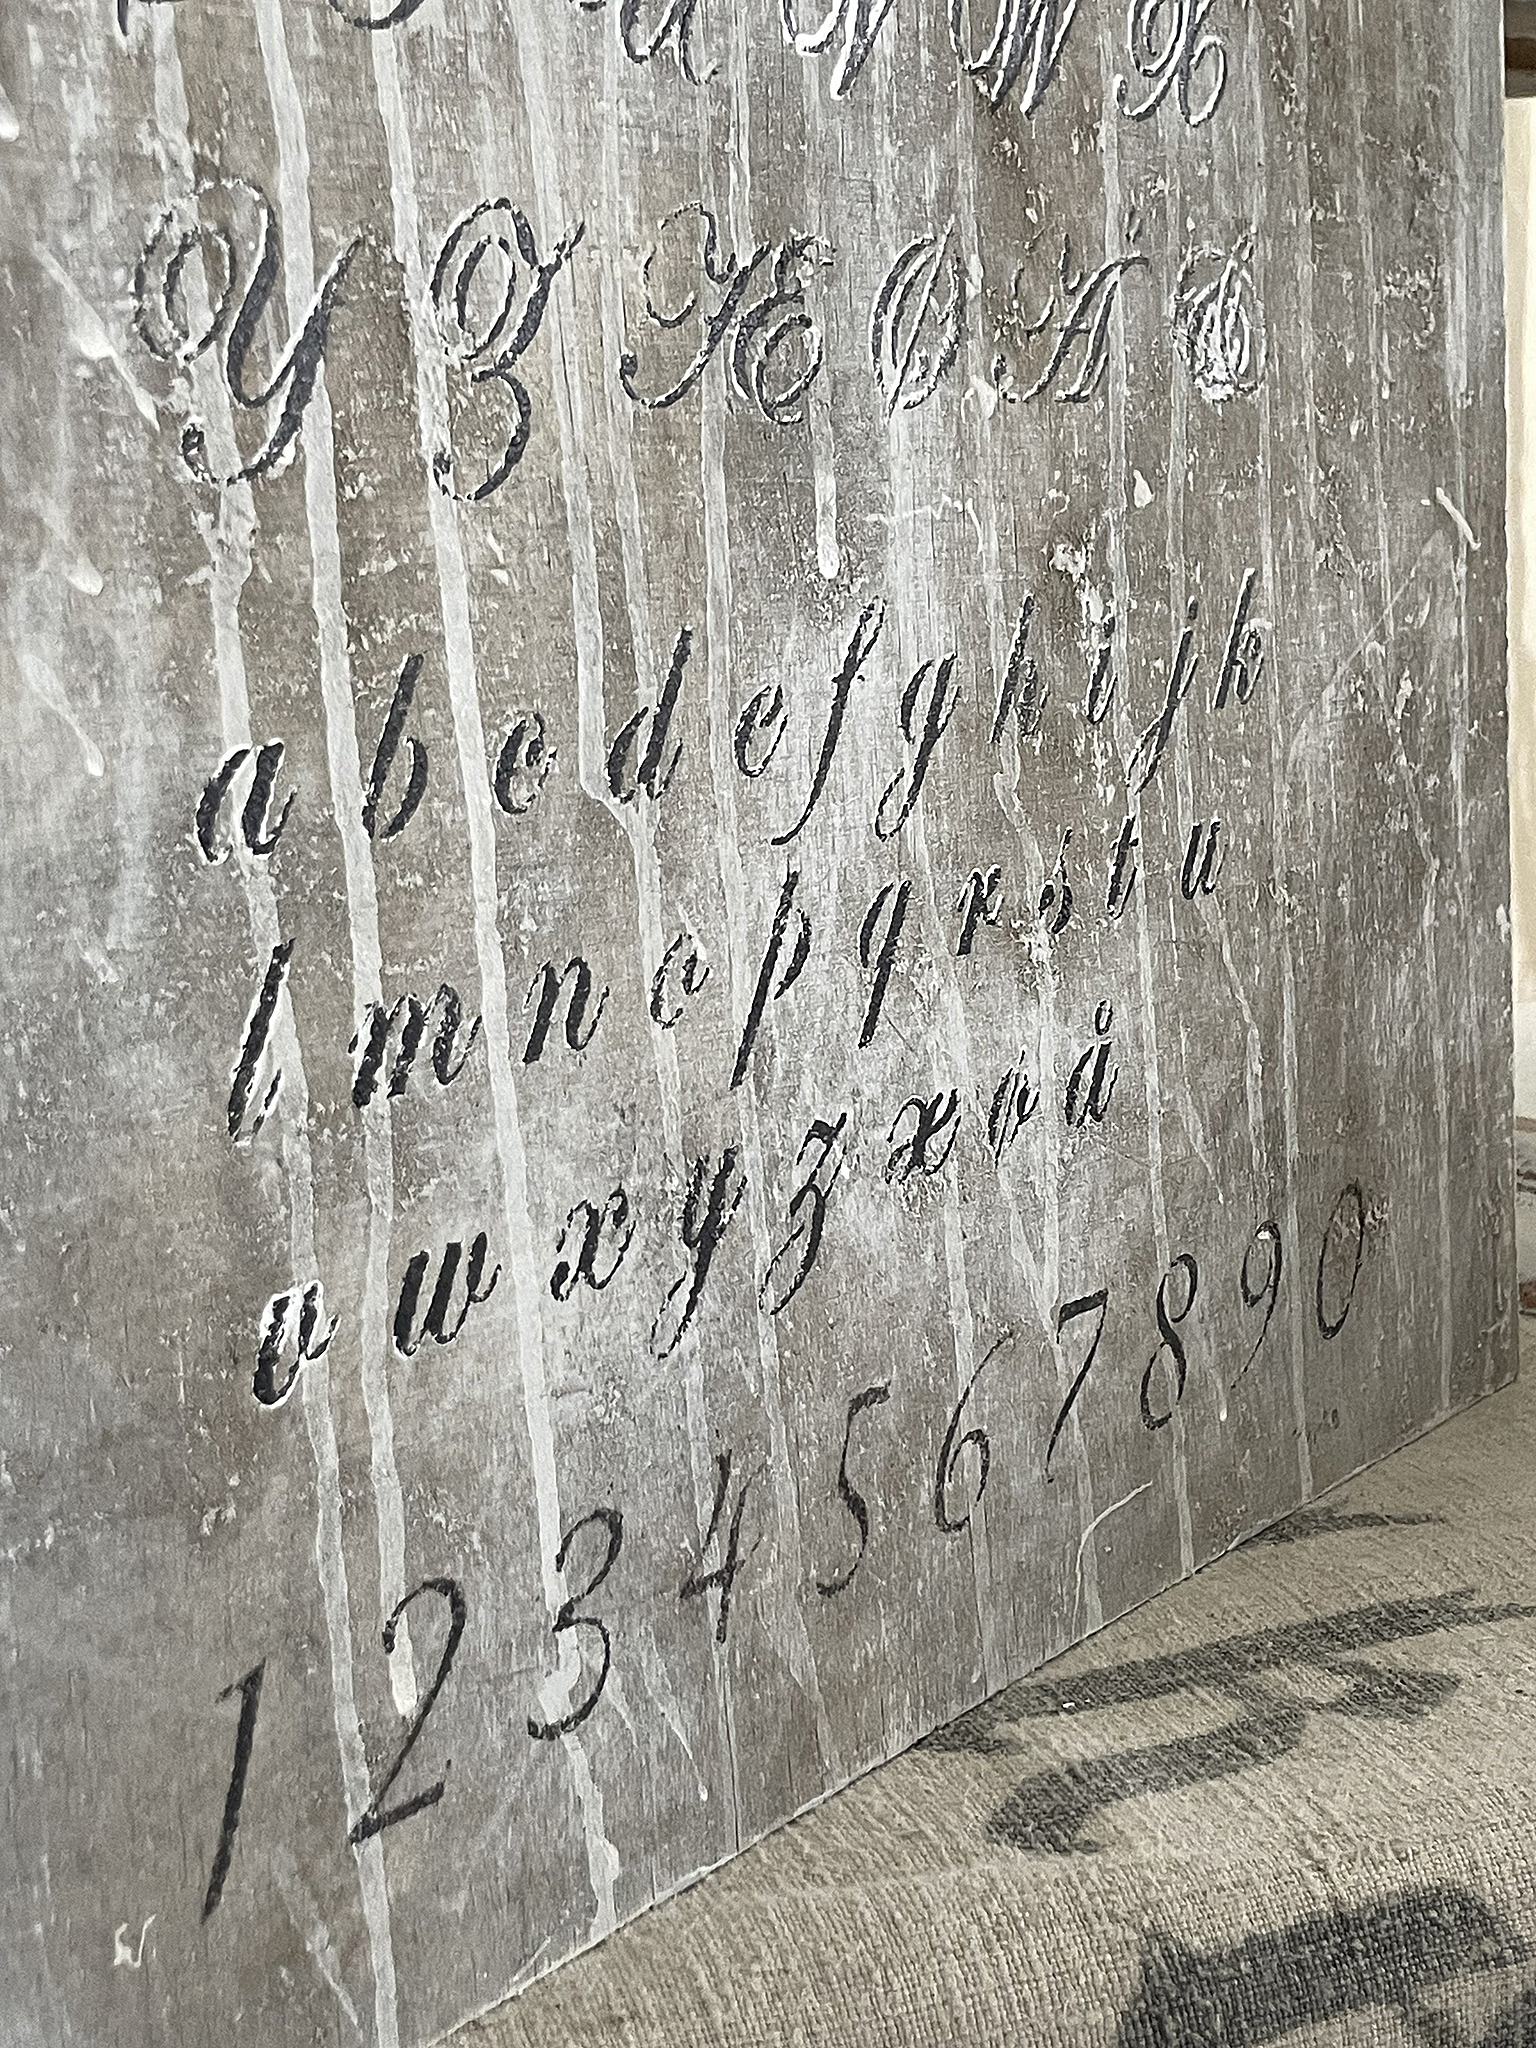 U V W X
Y Z Æ Ø Å
a b c d e f g h i j k
l m n o p q r s t u
v w x y z æ ø å
1 2 3 4 5 6 7 8 9 0